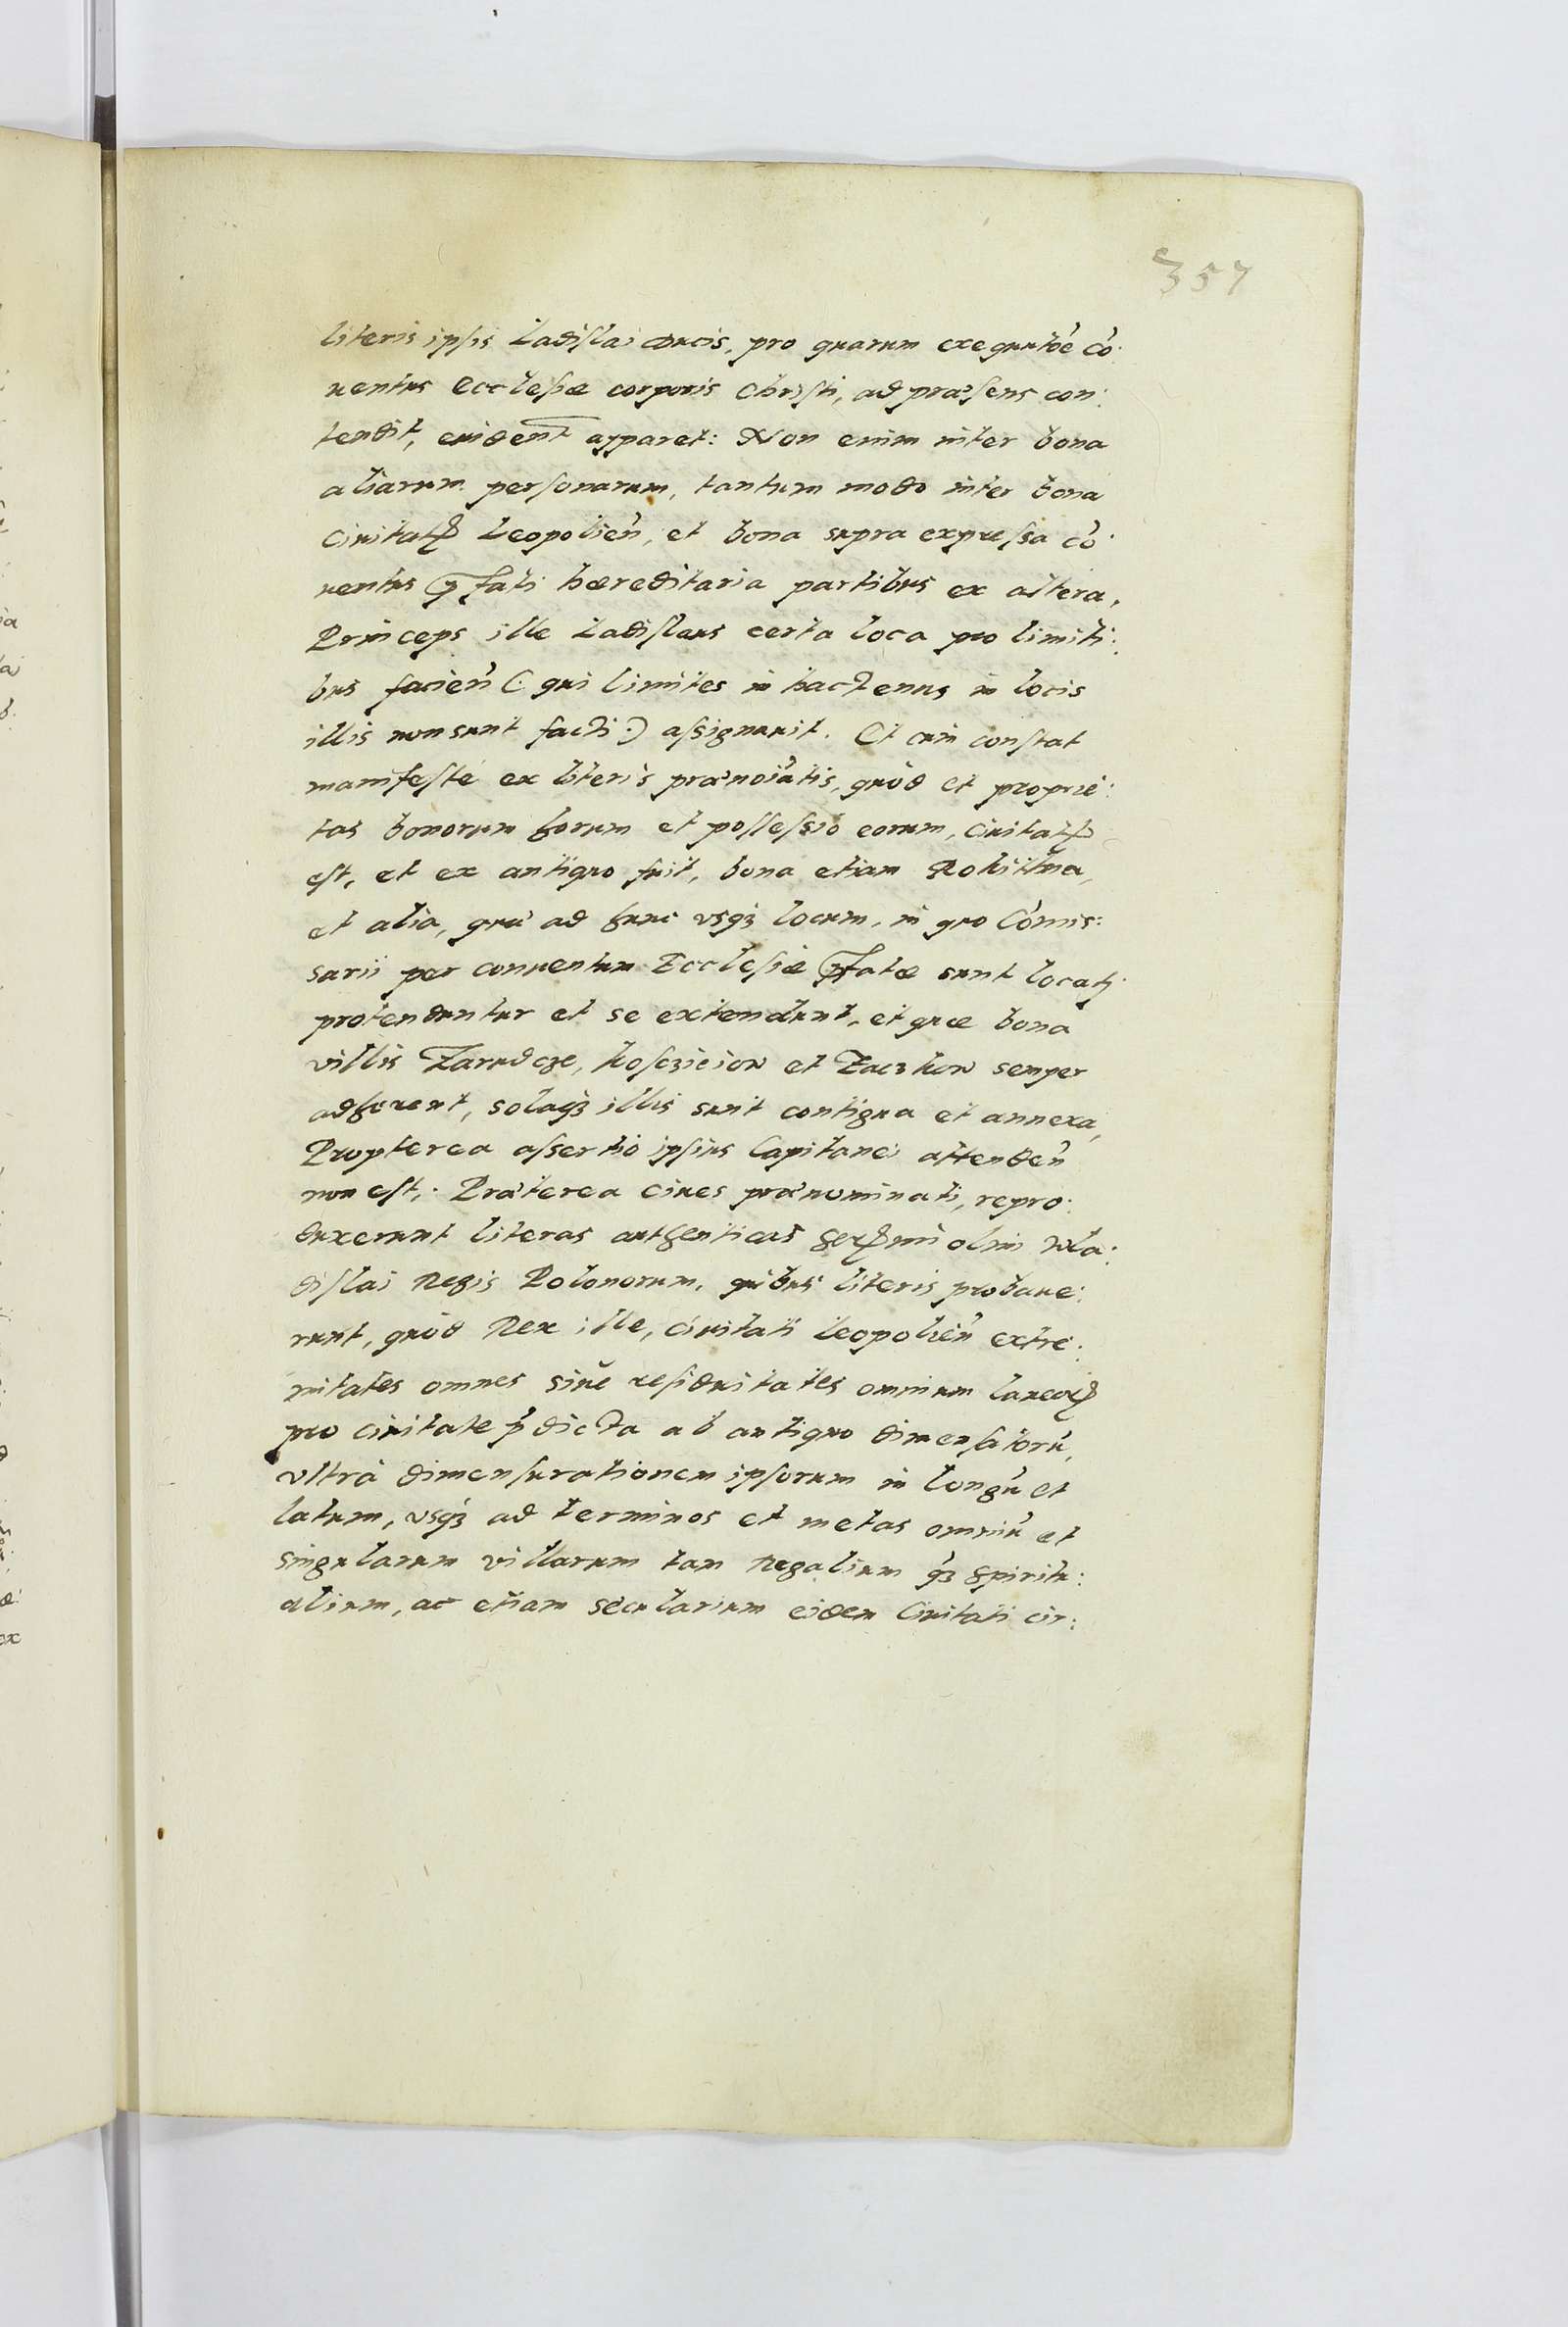 357
literis ipsis Ladislai Ducis, pro quarum exequutõe cõ:
uentus Ecclesiæ corporis Christi, ad præsens con:
tendit, euident̃ apparet: Non enim inter bona
aliarum personarum, tantum modo inter bona
Ciuitatꝭ Leopolień, et bona supra expressa cõ:
uentus ꝑfati hæreditaria partibus ex altera,
Princeps ille Ladislaus certa loca pro limiti:
bus facień (: qui limites in hactenus in locis
illis non sunt facti :) assignauit. Et cum constat
manifesté ex literis prænoĩatis, quòd et proprie:
tas bonorum horum et possessio eorum, Ciuitatꝭ
est, et ex antiquo fuit, bona etiam Rokitna,
et alia, quæ ad hunc vsqꝫ locum, in quo Cõmis:
sarii per conuentum Ecclesiæ ꝑfatæ sunt locati
protenduntur et se extendunt, et quæ bona
villis Zarudcze, hosczieiow et Zaczkow semper
adherent, solaqꝫ illis sunt contigua et annexa,
Propterea assertio ipsius Capitanei attendeń
non est,. Præterea ciues prænominati, repro:
duxerunt literas authenticas serꝭmi olim Wla:
dislai Regis Polonorum, quibus literis probaue:
runt, quòd Rex ille, ciuitati Leopolień extre:
mitates omnes siue residuitates omnium laneoꝝ
pro ciuitate p̃dicta ab antiquo dimensatorũ,
vltrà dimensurationem ipsorum in longũ et
latum, vsqꝫ ad terminos et metas omniũ et
singularum villarum tam Regalium qꝫ̃ spiritu:
alium, ac etiam secularium eidem Ciuitati cir: